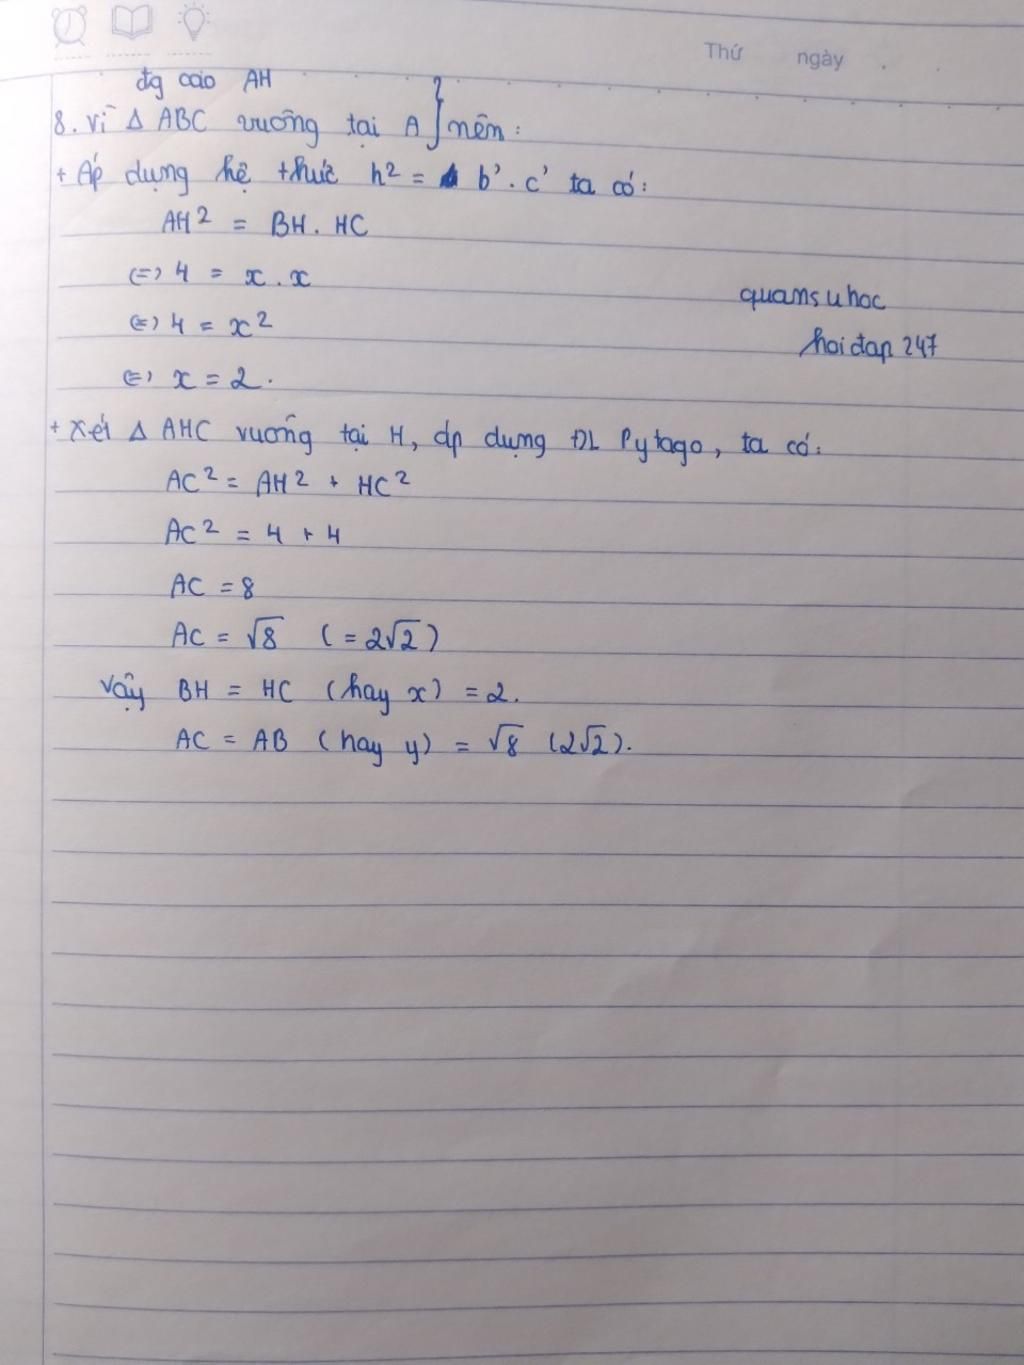 Thứ ngày
đg cao AH
8. Vì Δ ABC vuông tại A } nên:
+ Áp dụng hệ thức h² = b'. c' ta có:
AH² = BH. HC
(=) 4 = x . x
(=) 4 = x²
(=) x = 2.
quansuhoc
hoidap 247
+ Xét Δ AHC vuông tại H, áp dụng ĐL Pytago, ta có:
AC² = AH² + HC²
AC² = 4 + 4
AC = 8
AC = √8 ( = 2√2 )
Vậy BH = HC (hay x) = 2.
AC = AB (hay y) = √8 (2√2).